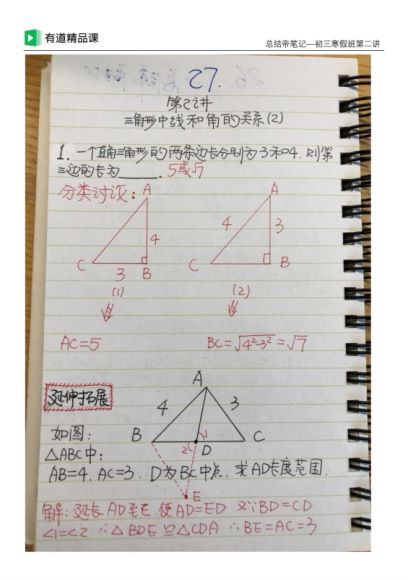 有道精品课
总结帝笔记—初三寒假班第二讲
27.
第2讲
三角形中线和角的关系(2)
1. 一个直角三角形的两条边长分别为3和4. 则第
三边的长为____. 5或√7
分类讨论:
A
4
C 3 B
(1)
A
4 3
C B
(2)
AC=5
BC=√4²-3²=√7
延伸拓展
A
4 3
如图:
B C
1
2 D
△ABC中:
AB=4. AC=3. D为BC中点. 求AD长度范围.
E
解: 延长AD至E. 使AD=ED 又∵BD=CD
∠1=∠2 ∴△BDE≌△CDA ∴BE=AC=3